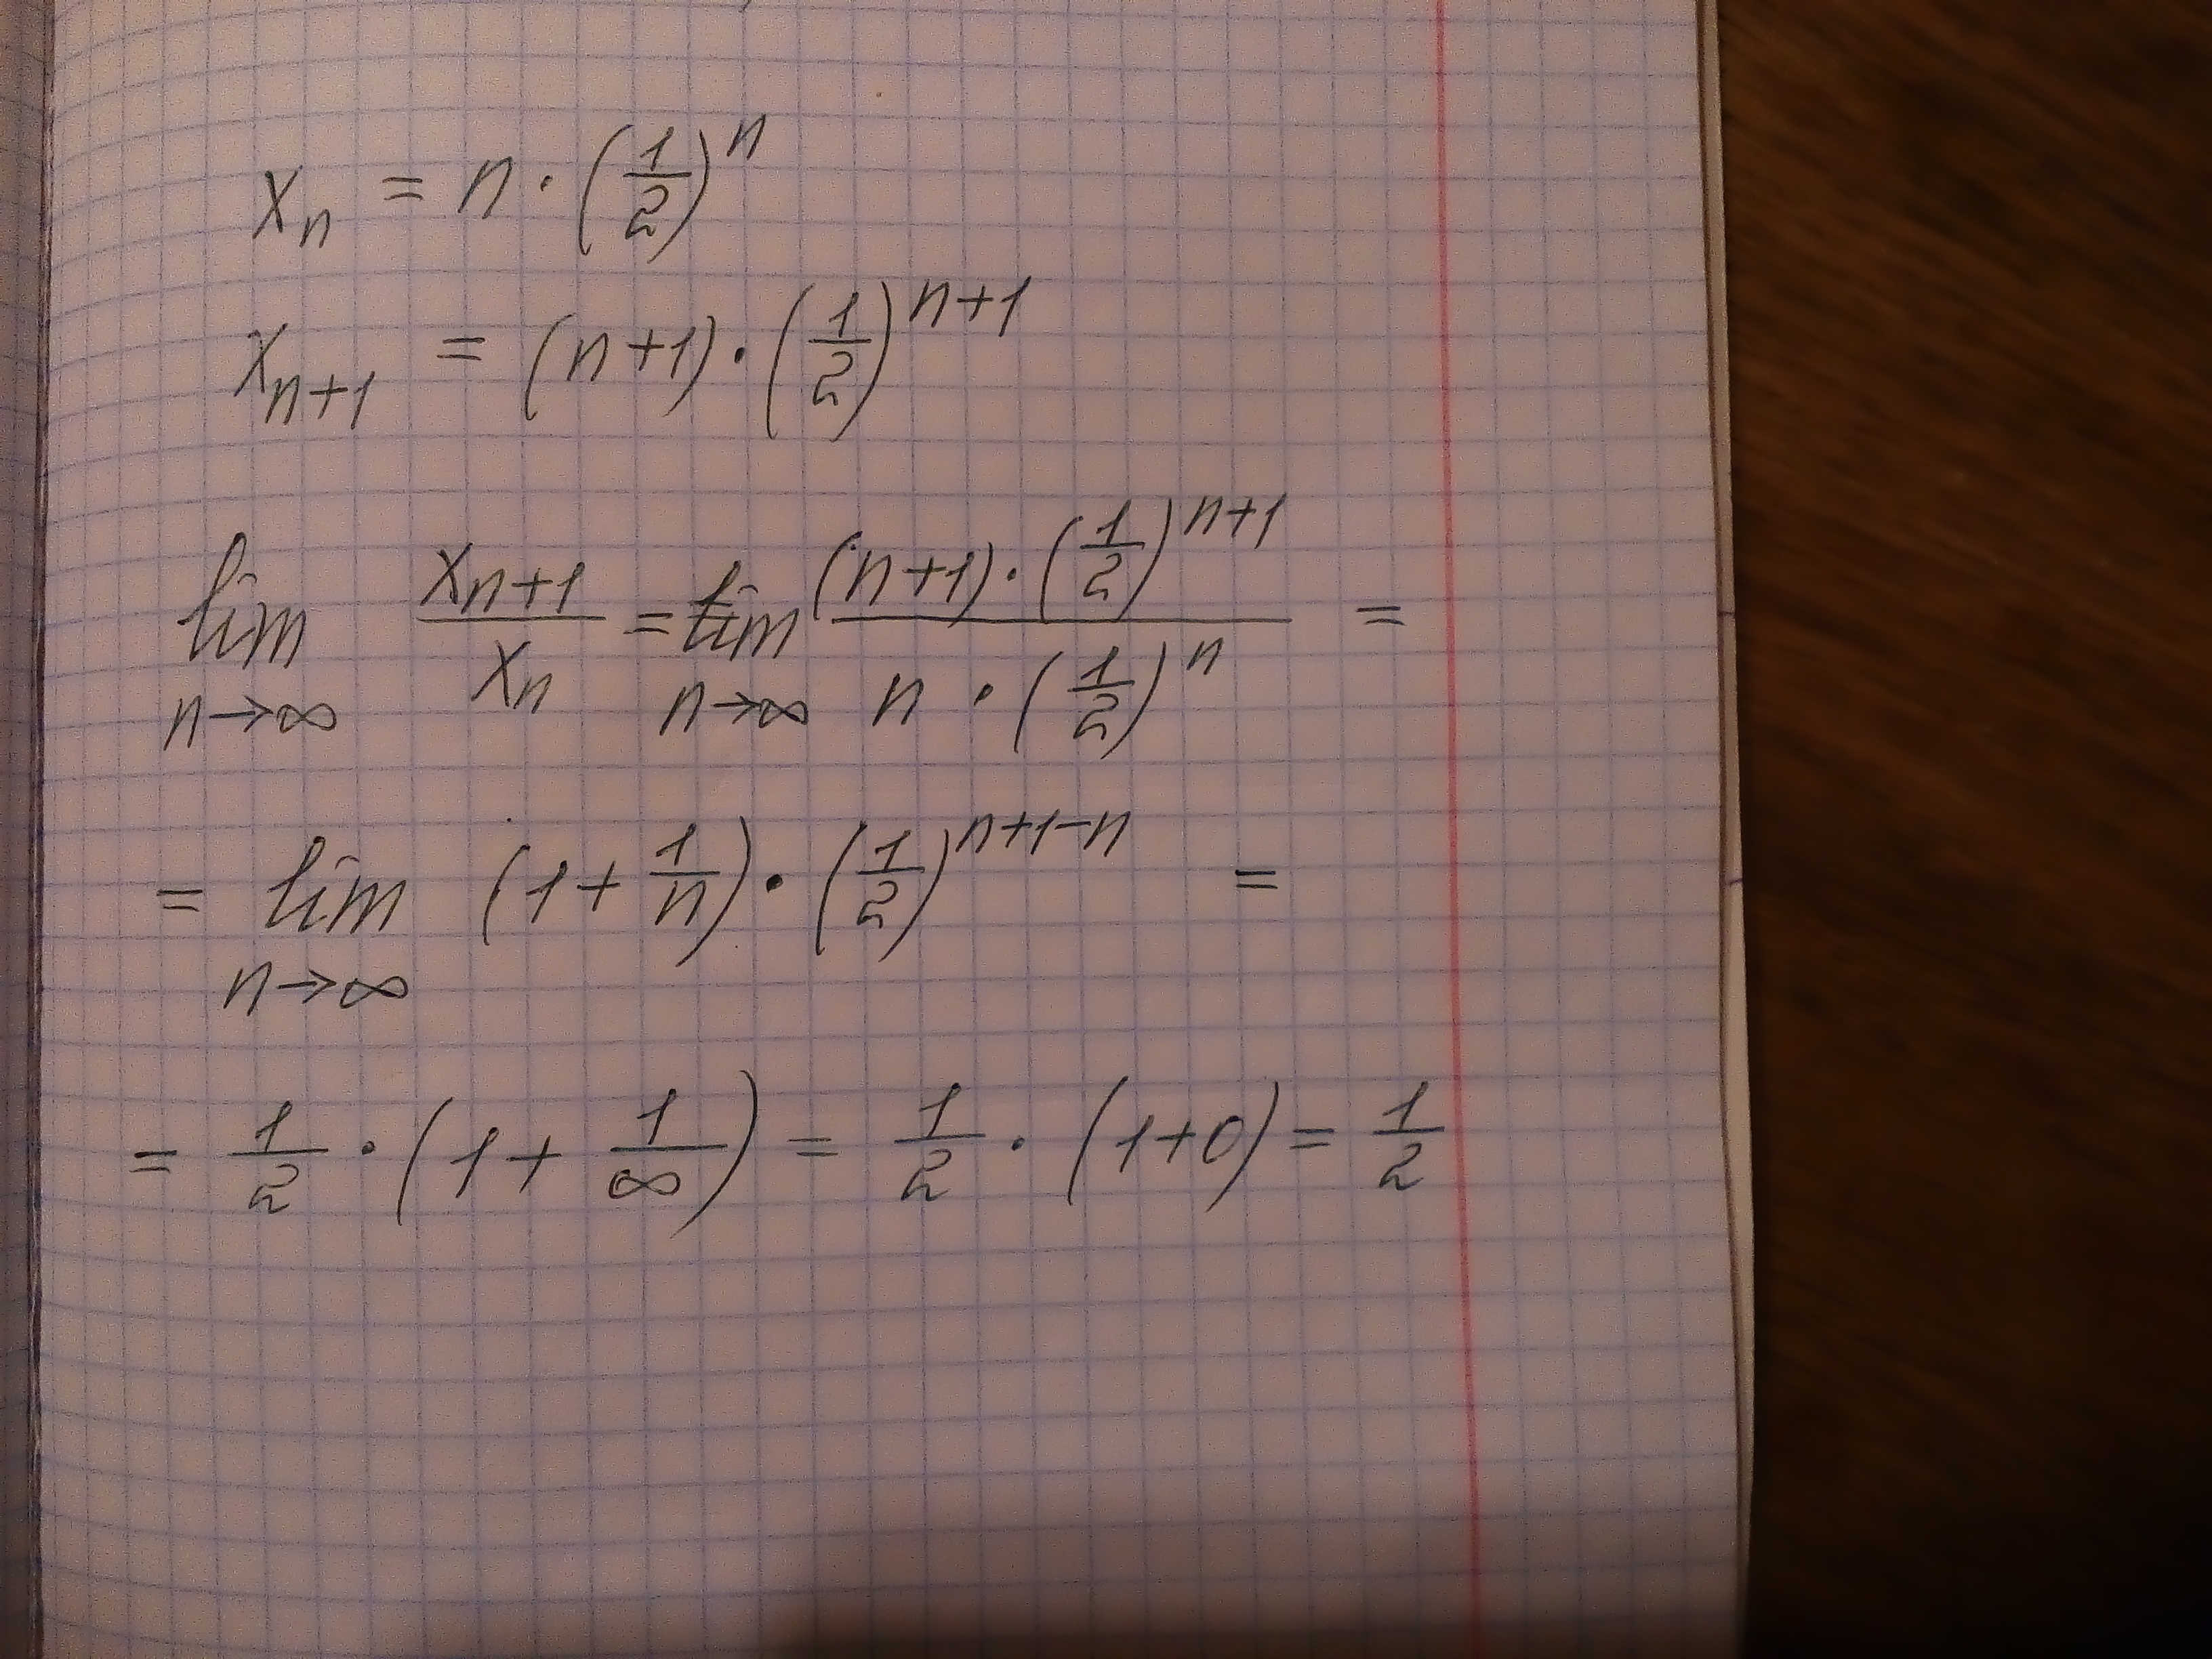 xₙ = n · (1/2)ⁿ
xₙ₊₁ = (n+1) · (1/2)ⁿ⁺¹
lim n→∞ xₙ₊₁/xₙ = lim n→∞ ((n+1) · (1/2)ⁿ⁺¹)/(n · (1/2)ⁿ) =
= lim n→∞ (1 + 1/n) · (1/2)ⁿ⁺¹⁻ⁿ =
= 1/2 · (1 + 1/∞) = 1/2 · (1+0) = 1/2